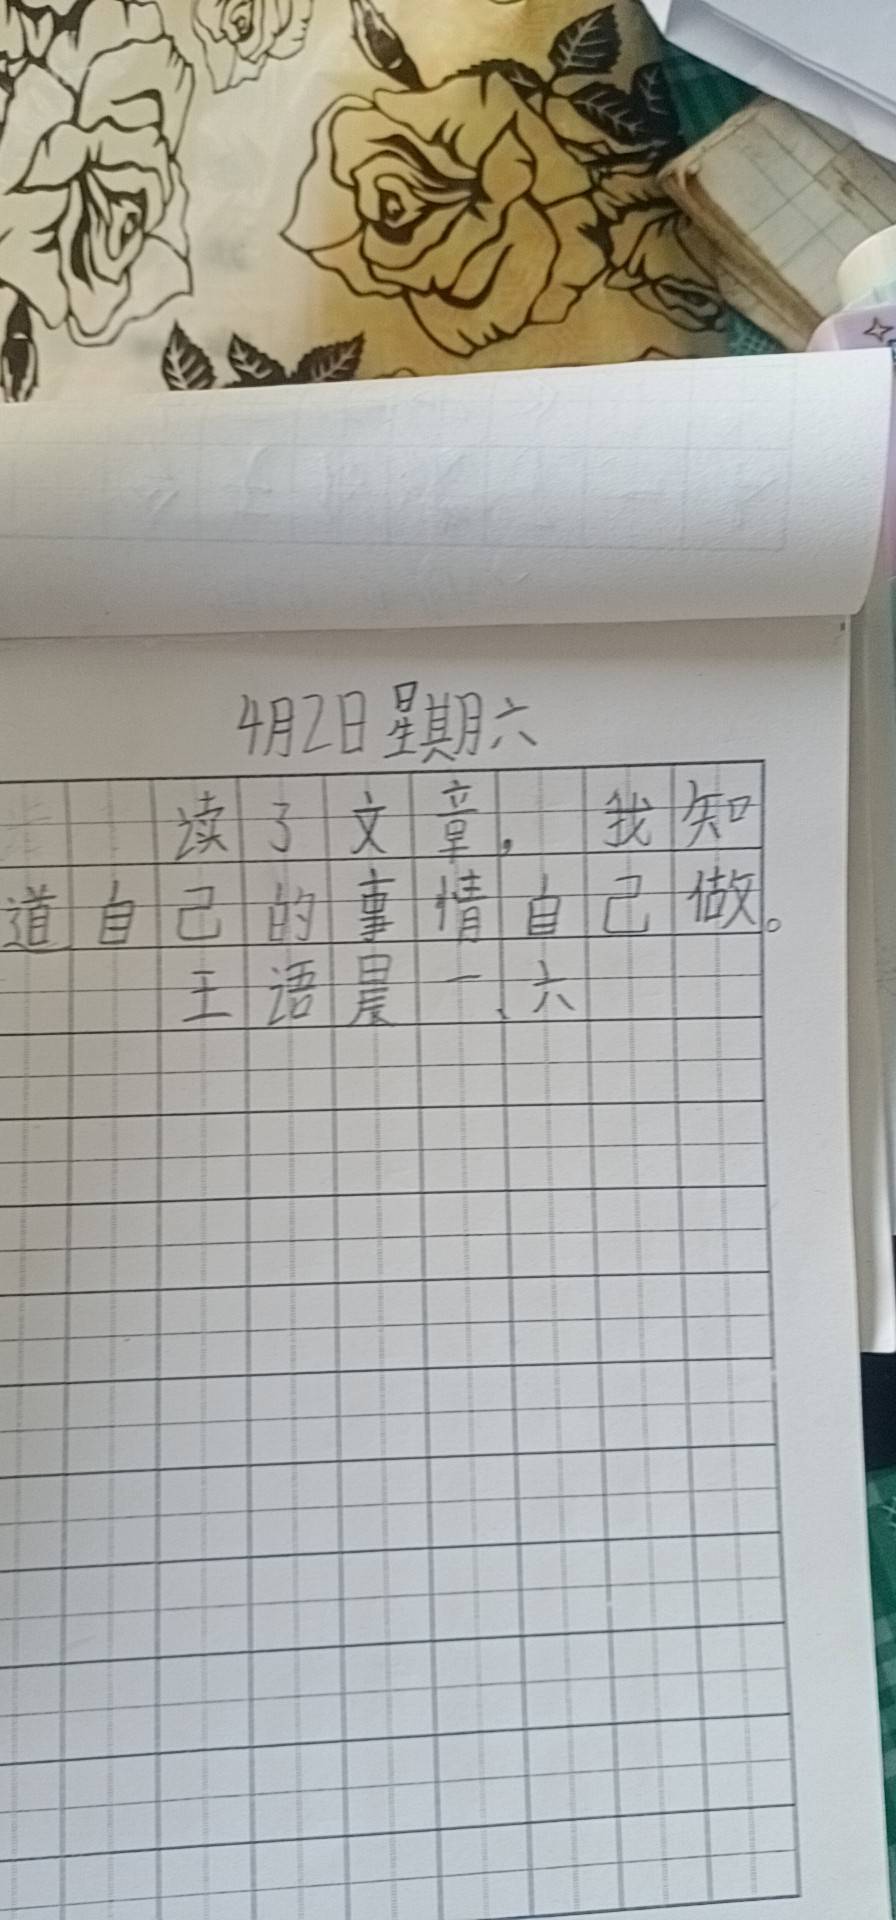 4月2日星期六
读了文章，我知
道自己的事情自己做。
王语晨一、六